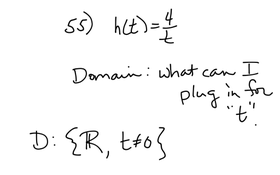 55) h(t) = 4/t
Domain: what can I
plug in for
"t".
D: {ℝ, t≠0}